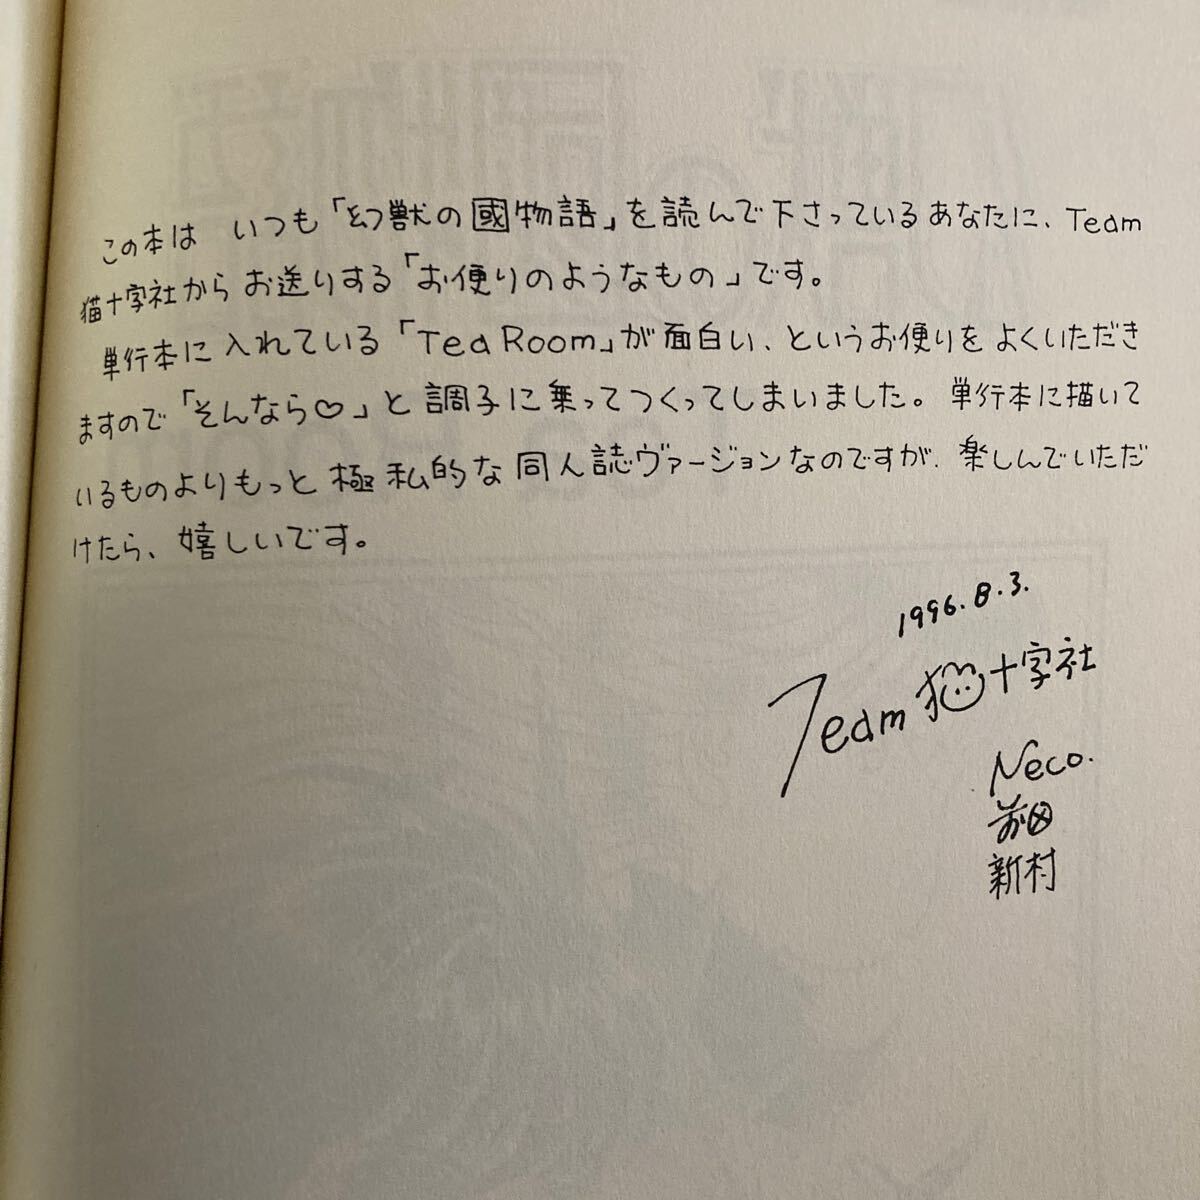 この本は いつも「幻獣の國物語」を読んで下さっているあなたに、Team
猫十字社からお送りする「お便りのようなもの」です。
単行本に入れている「Tea Room」が面白い、というお便りをよくいただき
ますので「そんなら♡」と調子に乗ってつくってしまいました。単行本に描いて
いるものよりもっと極私的な同人誌ヴァージョンなのですが、楽しんでいただ
けたら、嬉しいです。
1996.8.3.
Team 猫十字社
Neco.
新村